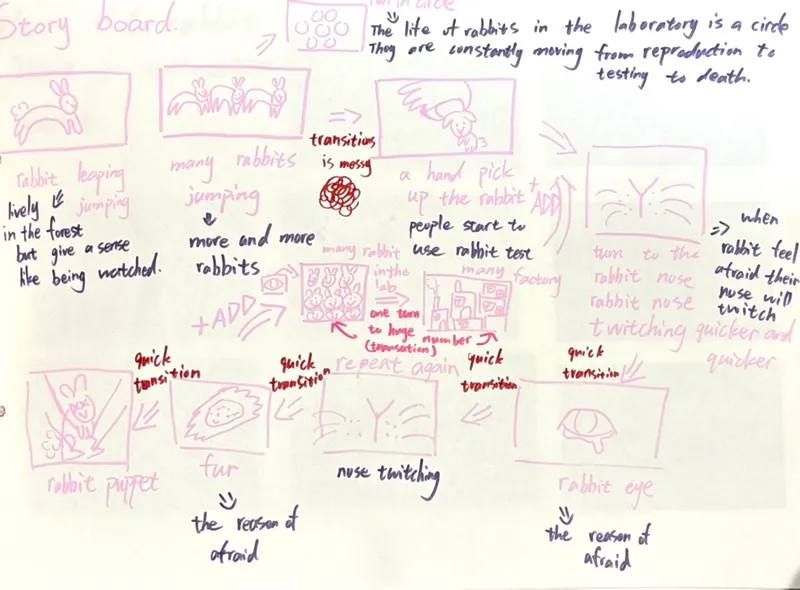 Story board.
run in circle
The life of rabbits in the laboratory is a circle
They are constantly moving from reproduction to
testing to death.
rabbit leaping
jumping
lively
in the forest
but give a sense
like being watched.
many rabbits
jumping
more and more
rabbits
transitions
is messy
a hand pick
up the rabbit
people start to
use rabbit test
+
ADD
turn to the
rabbit nose
rabbit nose
twitching quicker and
quicker
when
rabbit feel
afraid their
nose will
twitch
+ADD
many rabbit
in the
lab
one turn
to huge number
(transation)
many factory
repeat again
quick
transition
quick
transition
quick
transition
quick
transition
rabbit puppet
fur
the reason of
afraid
nose twitching
rabbit eye
the reason of
afraid